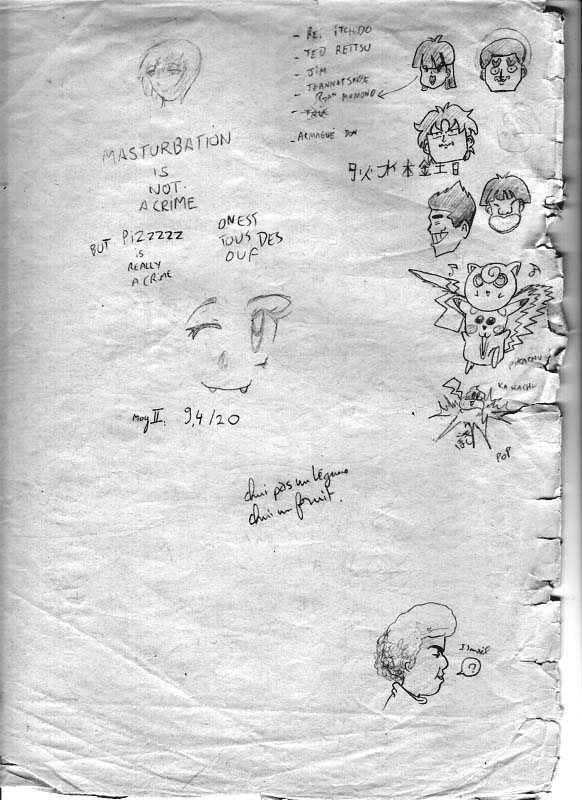 - REI ITCHDO
- TED REITSU
- JIM
- JEANNOT
MOMONO
- ARMAGUÉ DON
MASTURBATION
IS
NOT
A CRIME
火 水 木 金 土 日
BUT PIZZZZZ
IS
REALLY
A CRIME
ON EST
TOUS DES
OUF
PIKACHU
KAKACHU
POP
Moy II: 9,4/20
chui pas un légume
chui un fruit.
Ismaël
?